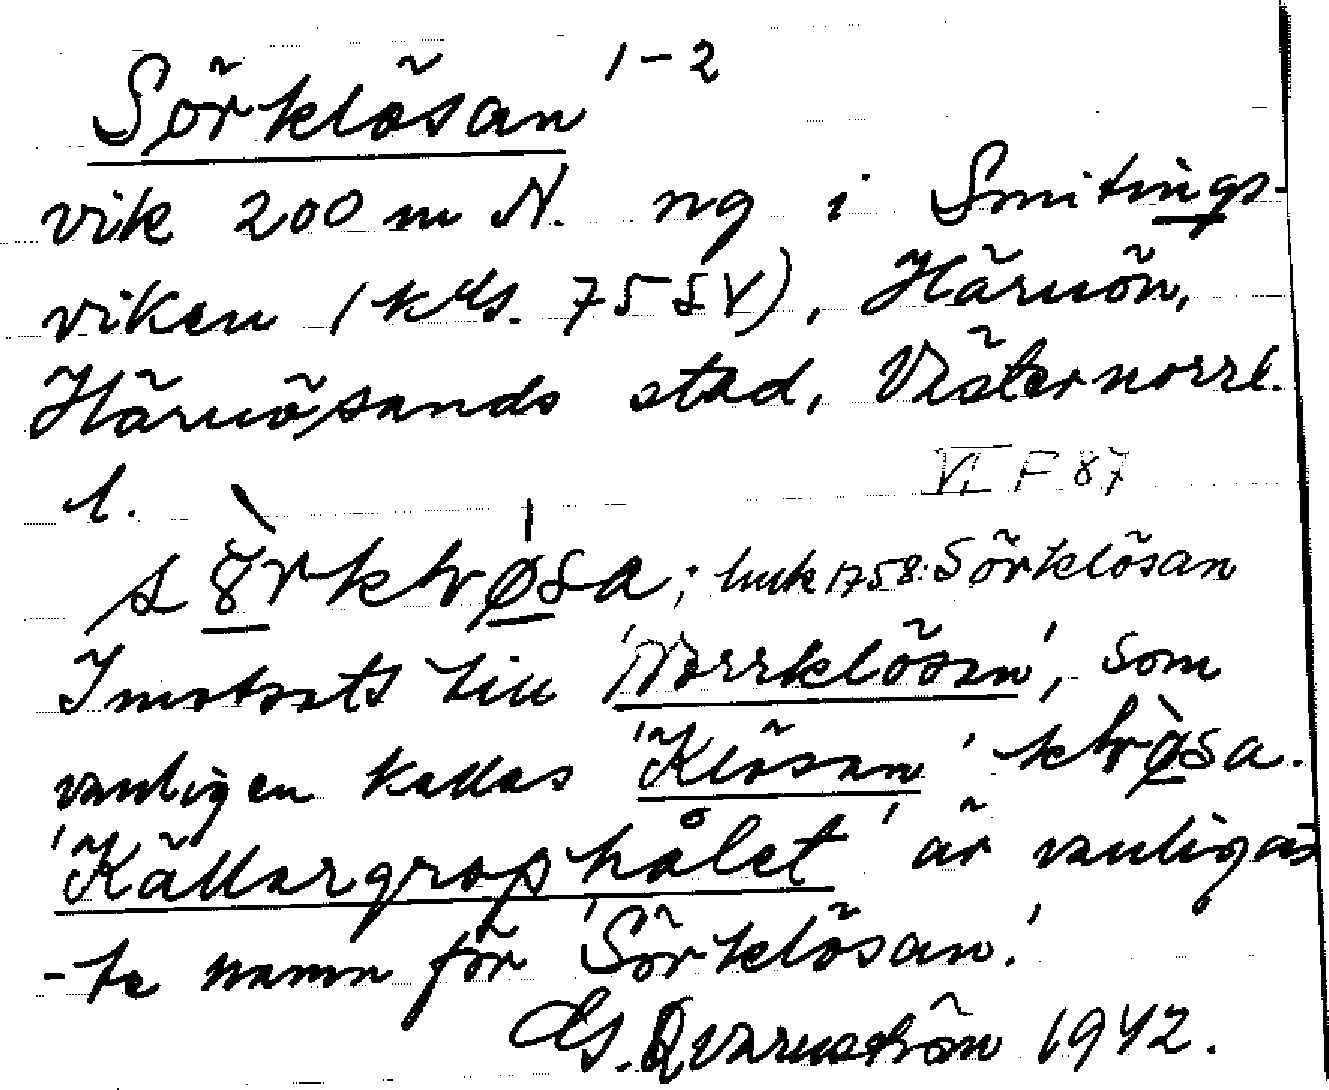 Sörklösan 1-2
vik 200 m N. ng i Smitings-
viken (kds. 75 SV), Härnön,
Härnösands stad, Västernorrl.
l.
VI F 87
sörkłøsa; luk 1758: Sörklösan
Imotsats till 'Norrklösan', som
vanligen kallas 'Klösan' kłøsa.
'Källargrophålet' är vanligas
-te namn för 'Sörklösan.'
Gs. Qvarnström 1942.